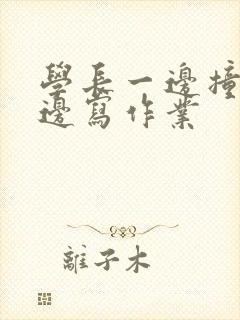 學長一邊撞
邊寫作業
離子木